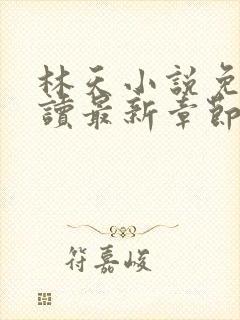 林天小說免
讀最新章節
符嘉峻